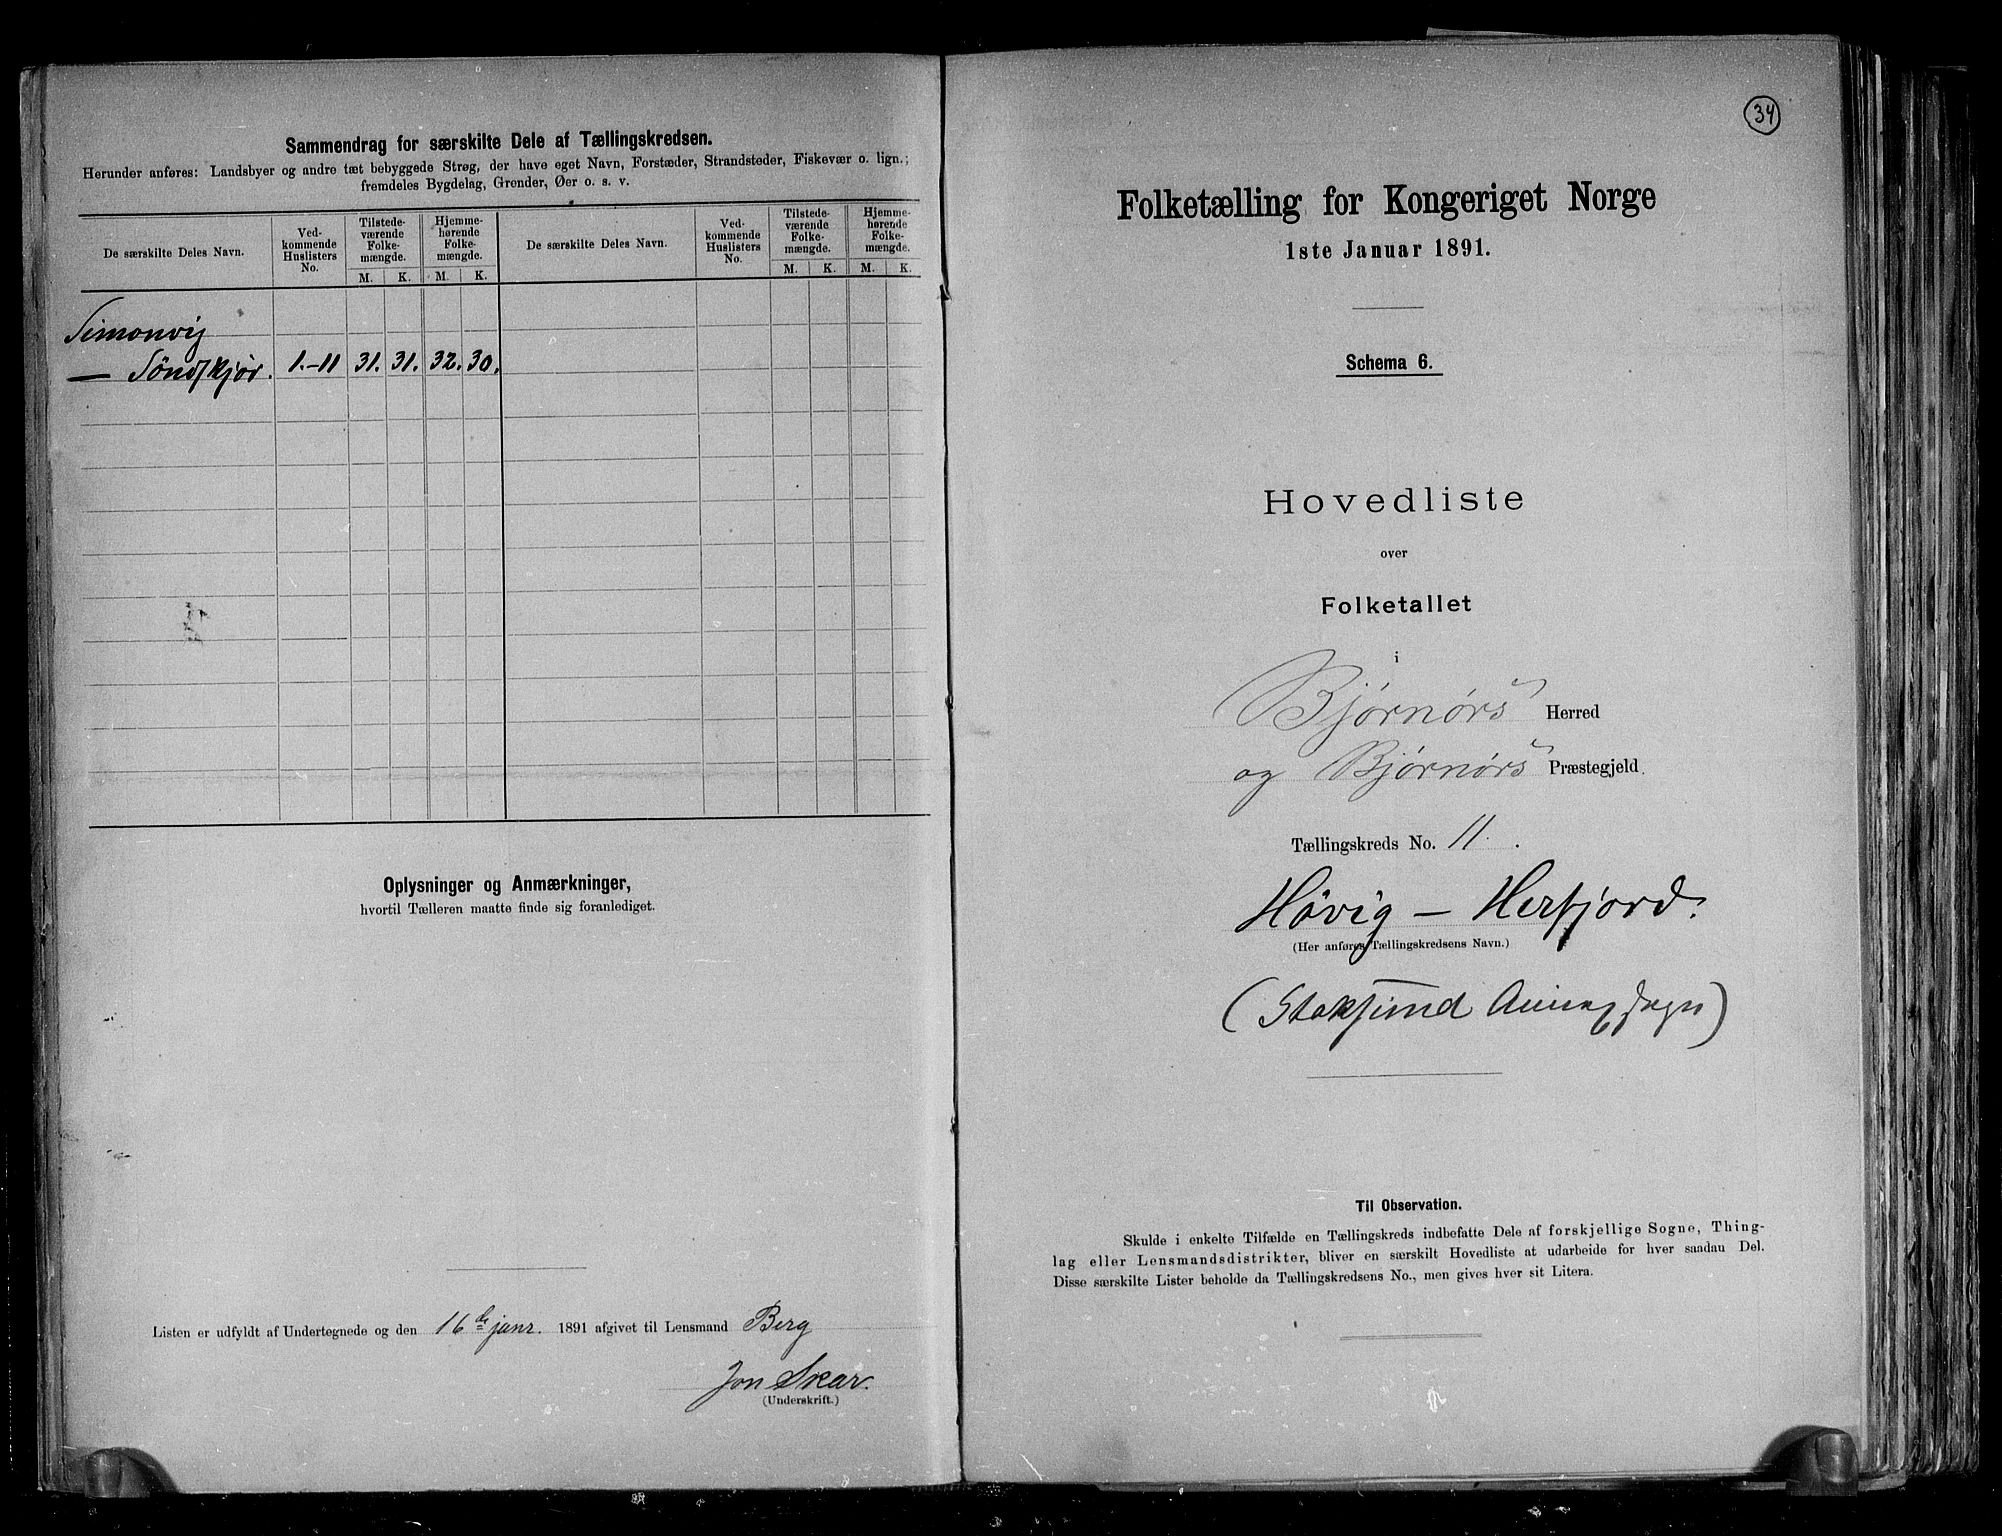 Sammendrag for særskilte Dele af Tællingskredsen.
Herunder anføres: Landsbyer og andre tæt bebyggede Strøg, der have eget Navn, Forstæder, Strandsteder, Fiskevær o. lign.;
fremdeles Bygdelag, Grender, Øer o. s. v.
De særskilte Deles Navn.
Ved-
kommende
Huslisters
No.
Tilstede-
værende
Folke-
mængde.
M. K.
Hjemme-
hørende
Folke-
mængde.
M. K.
De særskilte Deles Navn.
Ved-
kommende
Huslisters
No.
Tilstede-
værende
Folke-
mængde.
M. K.
Hjemme-
hørende
Folke-
mængde.
M. K.
Simonvig
— Söndskjör. 1.-11 31. 31. 32. 30.
Oplysninger og Anmærkninger,
hvortil Tælleren maatte finde sig foranlediget.
Listen er udfyldt af Undertegnede og den 16de janr. 1891 afgivet til Lensmand Berg
Jon Skar.
(Underskrift.)
34
Folketælling for Kongeriget Norge
1ste Januar 1891.
Schema 6.
Hovedliste
over
Folketallet
i
Bjørnørs Herred
og Bjørnørs Præstegjeld.
Tællingskreds No. 11.
Hövig — Herfjord.
(Her anføres Tællingskredsens Navn.)
(Stoksund Annexsogn)
Til Observation.
Skulde i enkelte Tilfælde en Tællingskreds indbefatte Dele af forskjellige Sogne, Thing-
lag eller Lensmandsdistrikter, bliver en særskilt Hovedliste at udarbeide for hver saadan Del.
Disse særskilte Lister beholde da Tællingskredsens No., men gives hver sit Litera.